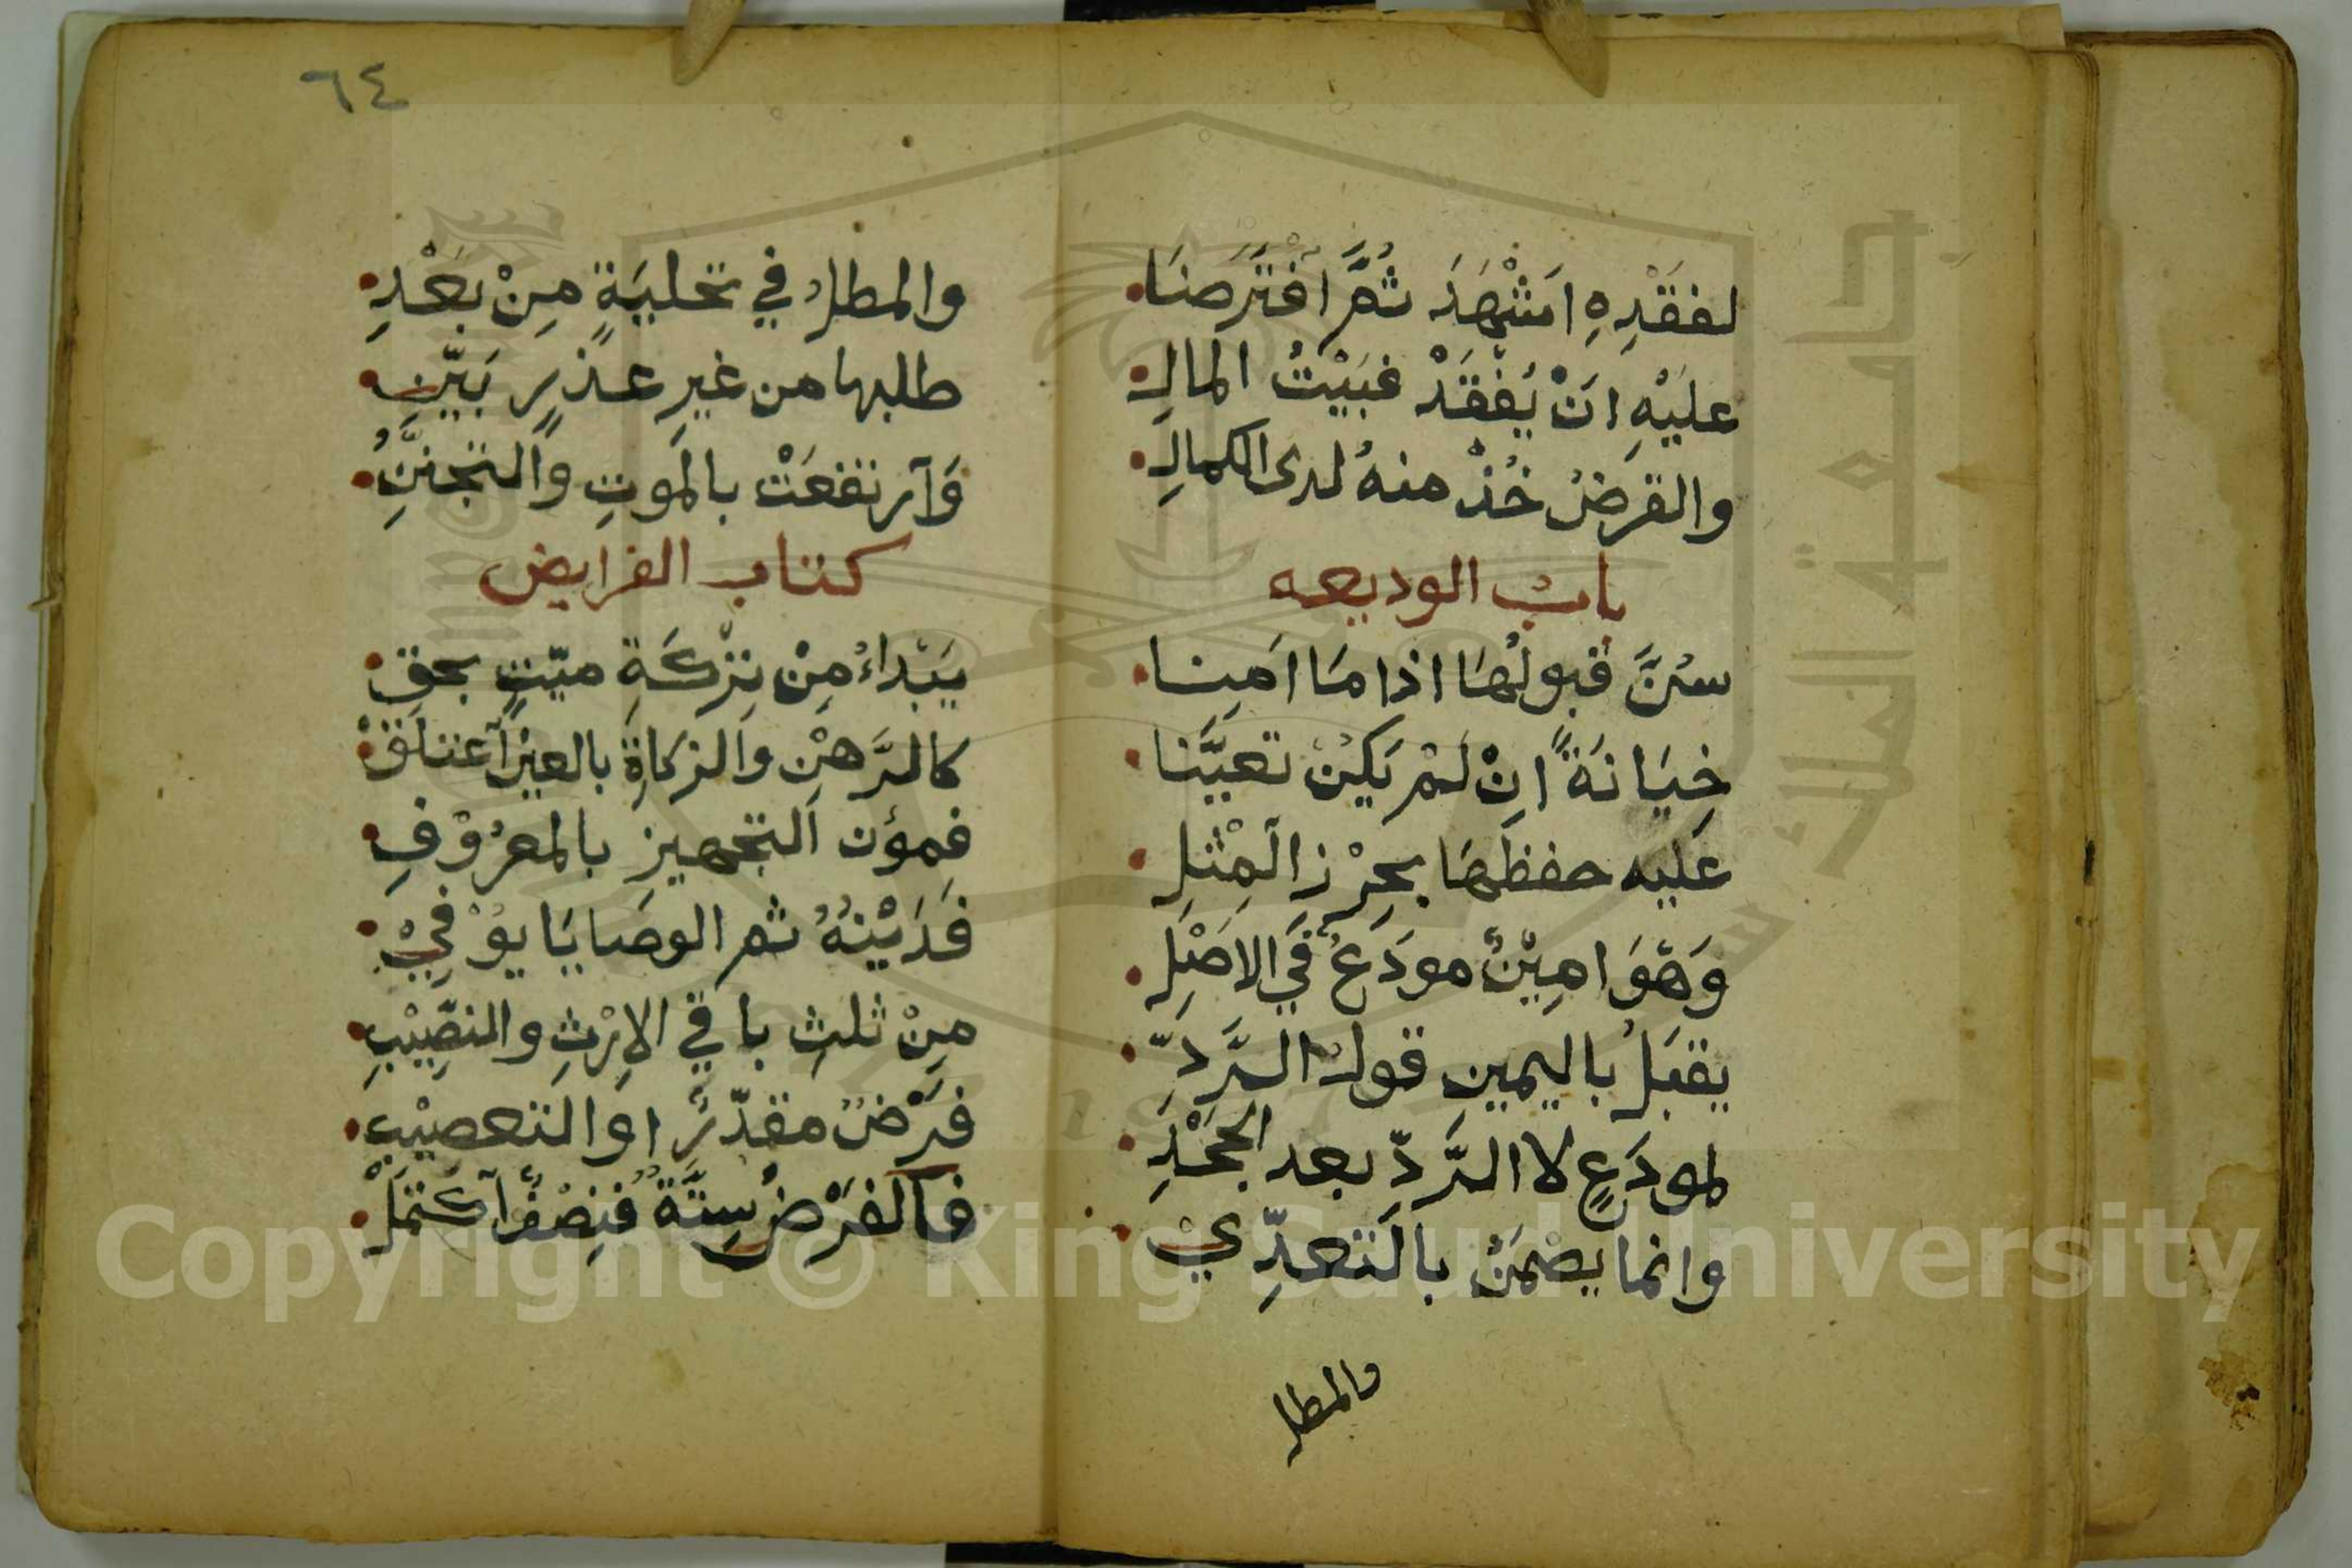 لفقدِهِ اَشْهَدَ ثُمَّ اقْتَرَضَا
عليْهِ انْ يُفْقَدْ فبَيْتُ المالِ
والقرضُ خُذْ منهُ لدى الكمالِ
بابُ الوديعه
سُنَّ قبولُهَا اذا مَا اَمِنا
خِيَانَةً انْ لَمْ يَكُنْ تعيَّنا
عَليه حفظهَا بحِرْزِ اَلمِثْلِ
وَهْوَ امِيْنٌ مودَعٌ فِي الاصْلِ
يقبَلُ باليمينِ قولُ الرَّدِّ
لمودَعٍ لا الرَّدِّ بعد الجَحْدِ
وانما يضْمَنُ بالتعدِّيْ
والمطل
٦٤
والمطلُ في تخليَةٍ مِنْ بَعْدِ
طلبها من غيرِ عذرٍ بَيِّنِ
وَآرتفعَتْ بالموتِ والتجنُّنِ
كتاب الفرايض
يَبْداءُ مِنْ تِرْكَةِ ميّتٍ بحقِ
كالرَّهنِ والزكاةِ بالعينِ آعتلَقْ
فمؤن التجهيزِ بالمعرُوْفِ
فَدَيْنُهُ ثم الوصَايَا يوُفِيْ
مِنْ ثلثِ باقي الاِرْثِ والنصِيْبِ
فرْضٌ مقدّرٌ او التعصيْبِ
فآلفرْضُ سِتَّةٌ فنِصْفٌ آكتمَلْ
Copyright © King Saud University
جامعة الملك سعود
1957